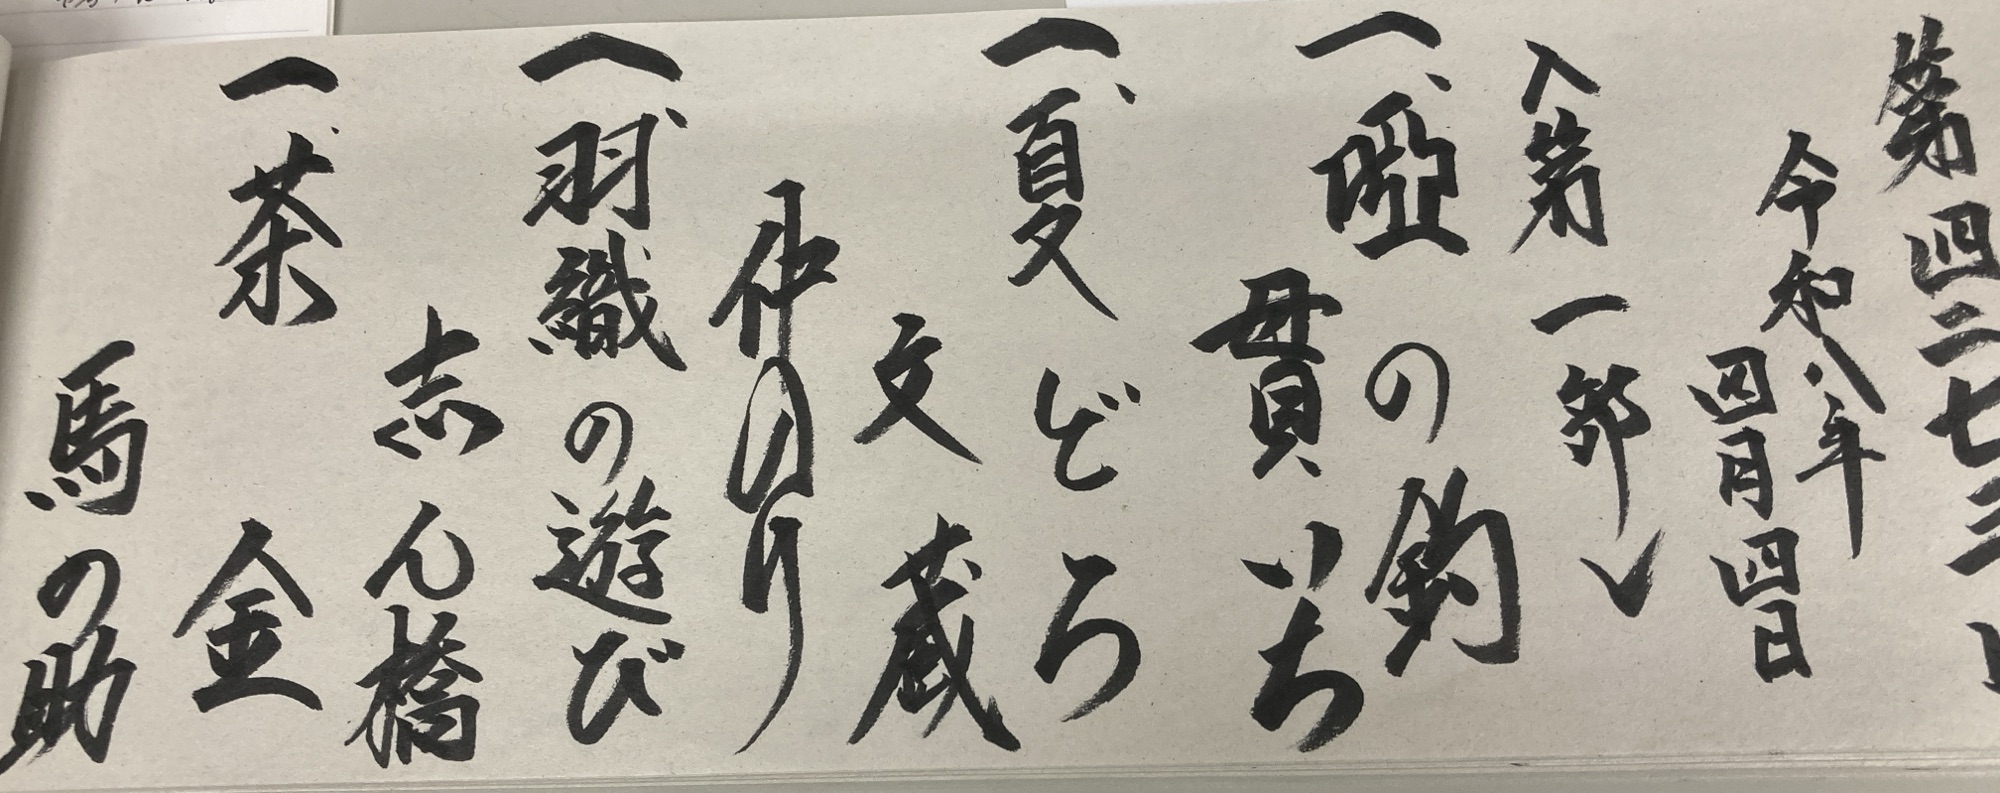 第四二七三
令和八年
四月四日
〈第一部〉
一、啞の釣
貫いち
一、夏どろ
文蔵
仲のり
一、羽織の遊び
志ん橋
一、茶金
馬の助